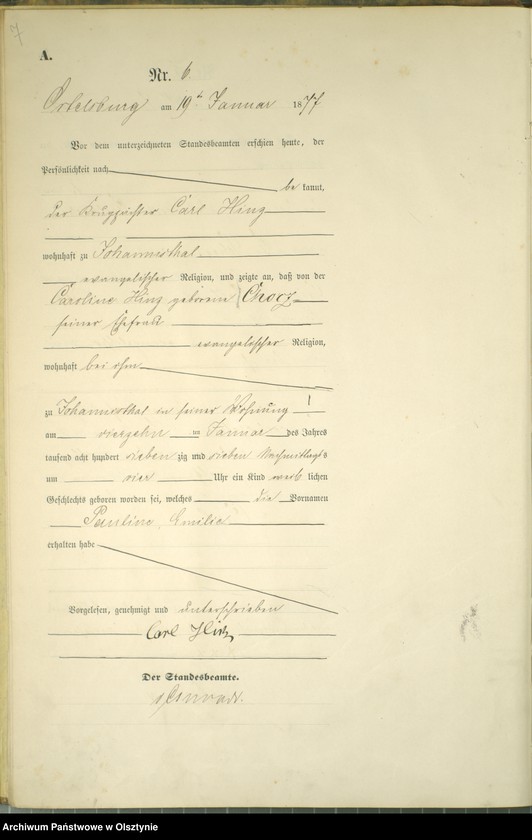 7
A.
Nr. 6.
Ortelsburg am 19ten Januar 1877
Vor dem unterzeichneten Standesbeamten erschien heute, der
Persönlichkeit nach
be kannt,
der Carl Hinz
wohnhaft zu Johannisthal
evangelischer Religion, und zeigte an, daß von der
Caroline Hinz geborene
seiner Ehefrau
evangelischer Religion,
wohnhaft bei ihm
zu Johannisthal in seiner Wohnung
am vierzehn ten Januar des Jahres
tausend acht hundert sieben zig und sieben Nachmittags
um vier Uhr ein Kind weib lichen
Geschlechts geboren worden sei, welches die Vornamen
Pauline, Emilie
erhalten habe
Vorgelesen, genehmigt und unterschrieben
Carl Hinz
Der Standesbeamte.
Archiwum Państwowe w Olsztynie